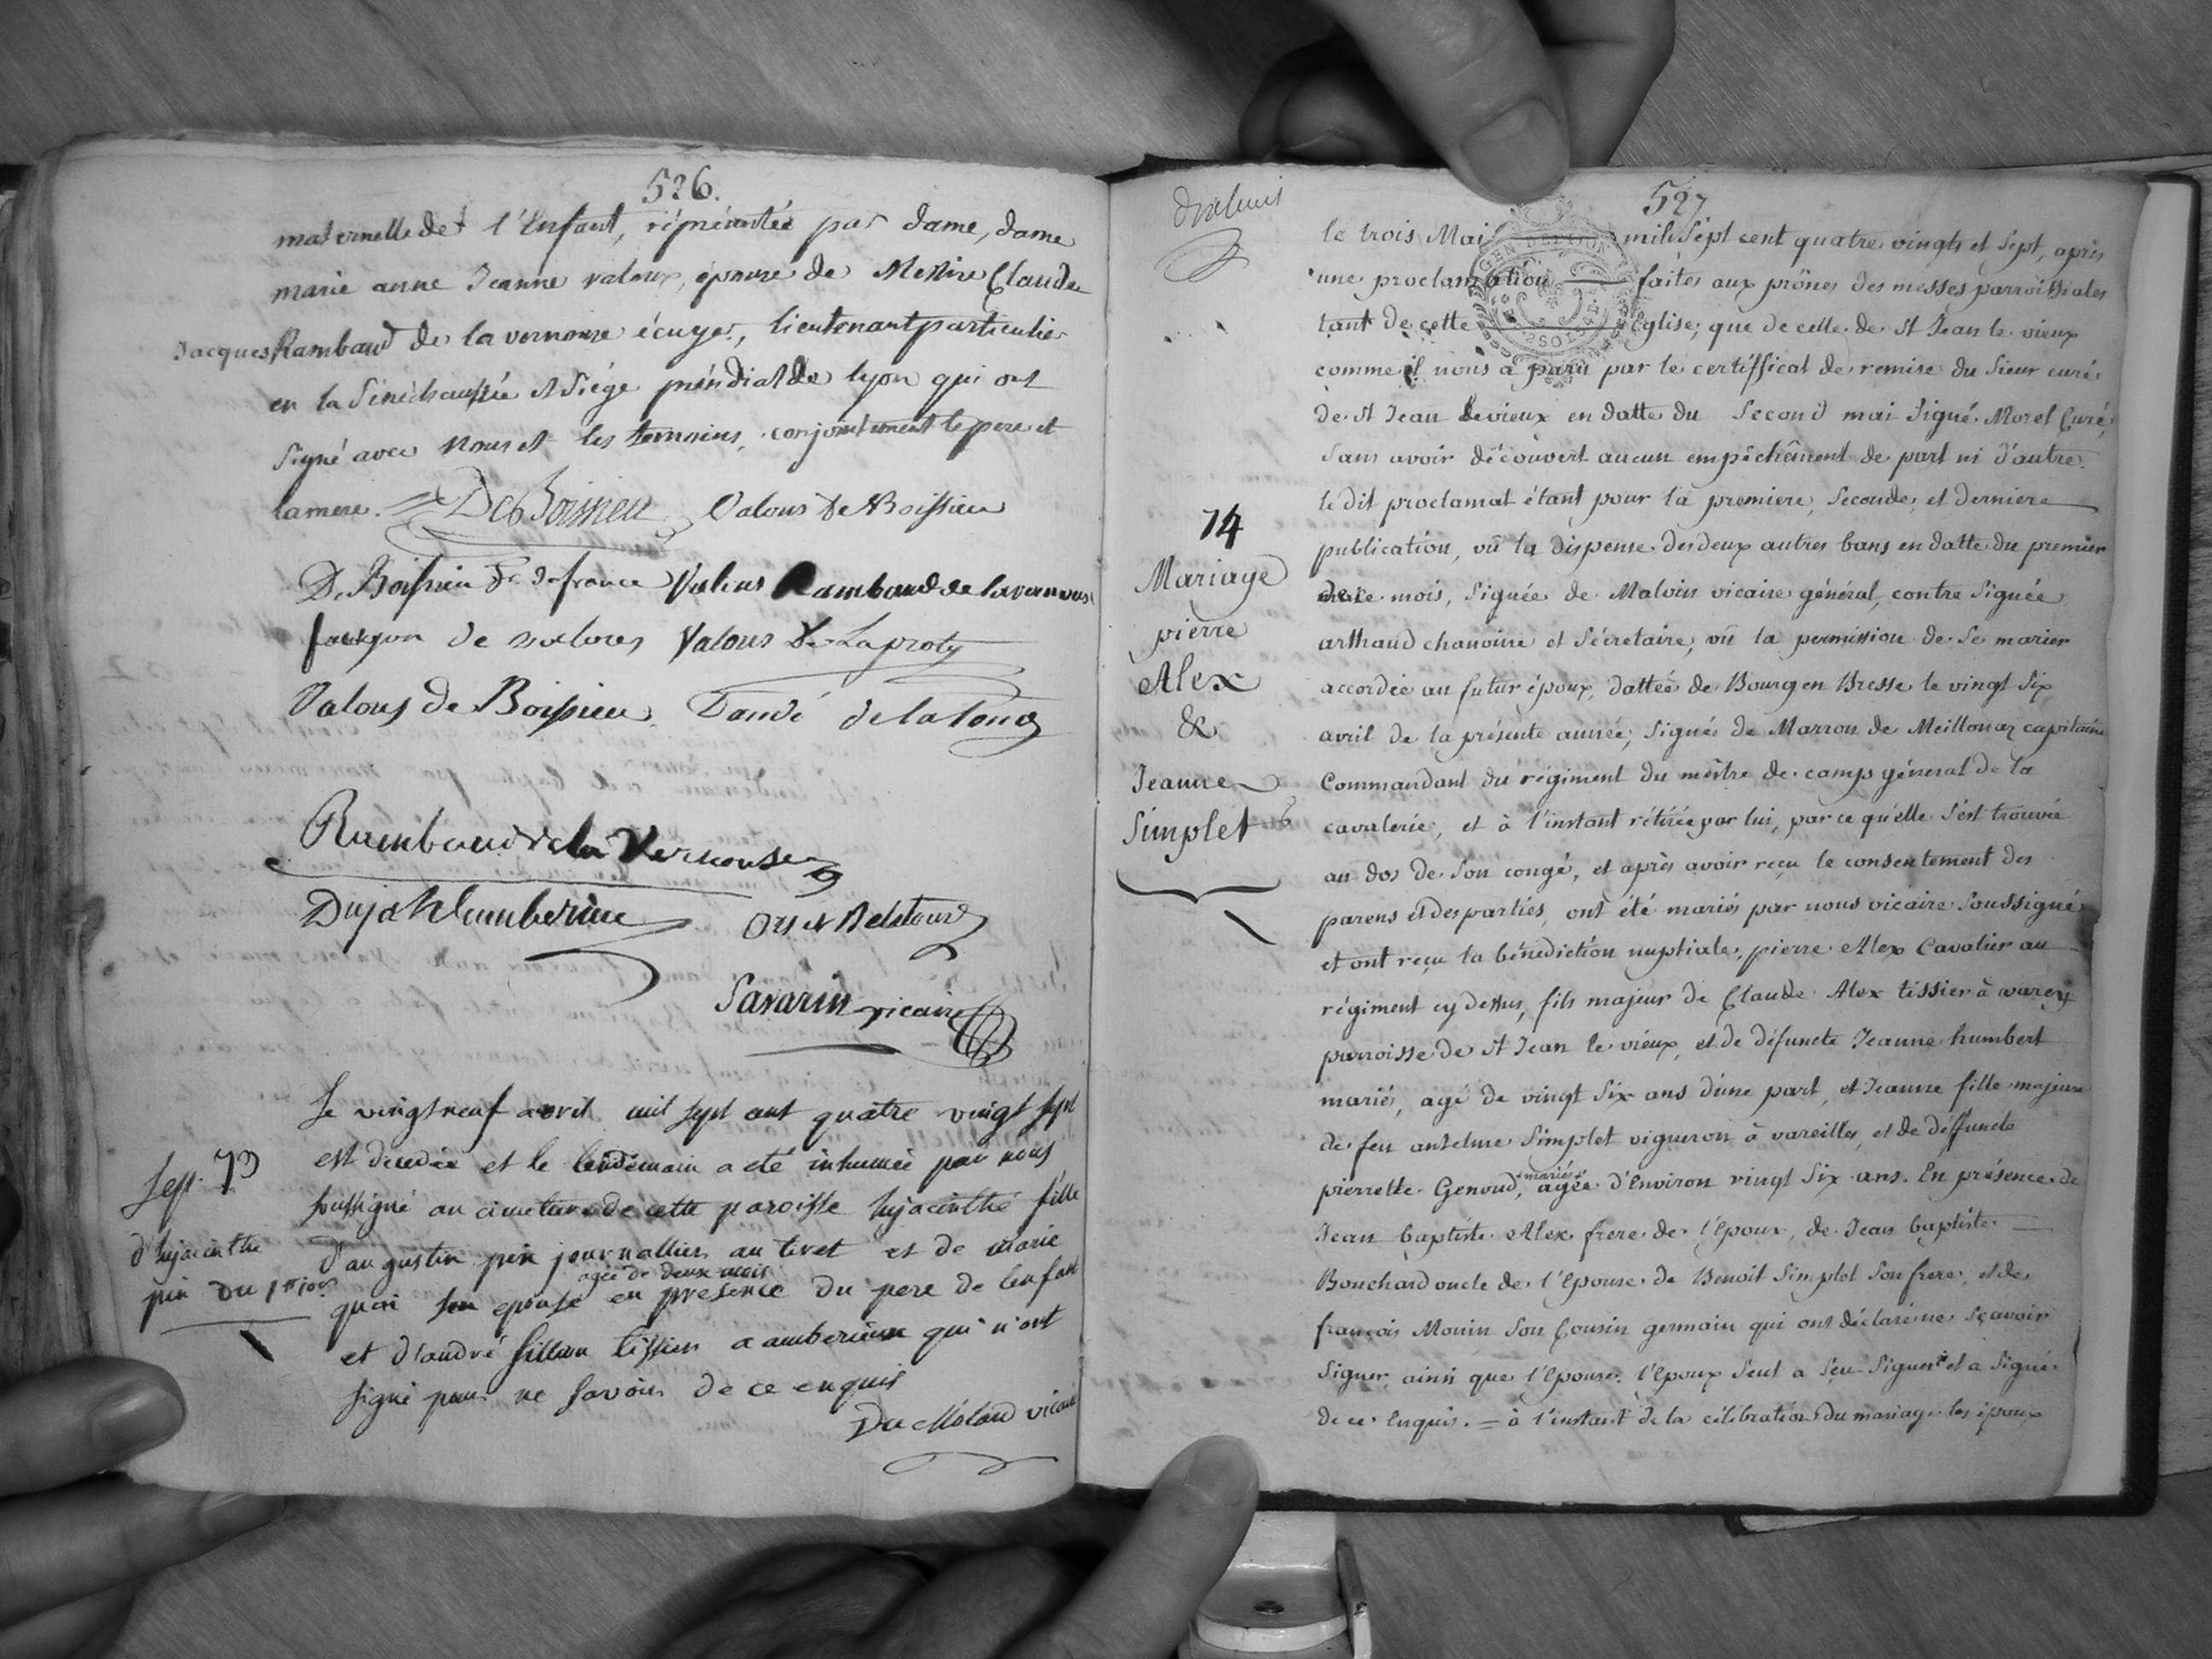 526.
maternelle de l'Enfant, réprésentée par dame, dame
marie anne Jeanne valous, épouse de Messire Claude
Jacques Rambaud de la vernouse écuyer, lieutenant particulier
en la Sénéchaussée et Siége présidial de lyon qui ont
signé avec nous et les temoins, conjointement le pere et
la mere. De Boissieu Valous De Boissieu
De Boissieu de france Valous Rambaud de lavernouse
de valous Valous De Laproty
Valous de Boissieu. Dandé de la
Rambaud de la Vernouse
Dujat Orset Delatour
Savarin vicaire
Le vingt neuf avril mil sept cent quatre vingt sept
Sep. 73
d'hyacinthe
pin du 1er jour
est decedée et le lendemain a eté inhumée par nous
soussigné au cimetiere de cette paroisse hyacinthe fille
d'augustin pin journallier au tiret et de marie
agée de deux mois
son epouse en presence du pere de lenfant
et d'andré tissier a amberieux qui n'ont
signé pour ne savoir de ce enquis
Du Molard vicaire
527
le trois Mai mil Sept cent quatre vingts et Sept, après
une proclamation faites aux prônes des messes parroissiales
tant de cette Eglise; que de celle de St Jean le vieux
comme il nous a paru par le certifficat de remise du Sieur curé
de St Jean le vieux en datte du Second mai Signé Morel Curé,
Sans avoir découvert aucun empêchêment de part ni d'autre.
le dit proclamat étant pour la premiere, Seconde, et derniere
publication, vû la dispense des deux autres bans en datte du premier
de ce mois, Signée de Malvin vicaire général, contre Signée
arthaud chanoine et Sécretaire; vû la permission de Se marier
accordée au futur époux, dattée de Bourg en Bresse le vingt Six
avril de la présente année; Signée de Marron de Meillonaz capitaine
Commandant du régiment du mêstre de camps géneral de la
cavalerie, et à l'instant rétirée par lui, parce qu'elle S'est trouvée
au dos de Son congé, et après avoir reçu le consentement des
parens et des parties, ont été mariés par nous vicaire Soussigné
et ont reçu la bénédiction nuptiale, pierre Alex Cavalier au
régiment cy dessus, fils majeur de Claude Alex tissier à varey
parroisse de St Jean le vieux, et de défuncte Jeanne humbert
mariés, agé de vingt Six ans d'une part, et Jeanne fille majeure
de feu antelme Simplet vigneron à vareilles, et de deffuncte
pierrette Genoud, mariés, agée d'Environ vingt Six ans. En présence de
Jean baptiste Alex frere de l'Epoux, de Jean baptiste
Bouchard oncle de l'Epouse de Benoit Simplet Son frere, et de
françois Monin Son Cousin germain qui ont déclaré ne Sçavoir
Signer, ainsi que l'Epouse. l'Epoux Seul a Sçu Signer et a Signé
de ce Enquis. = à l'instant de la célébration du mariage les époux
74
Mariage
pierre
Alex
&
Jeanne
Simplet